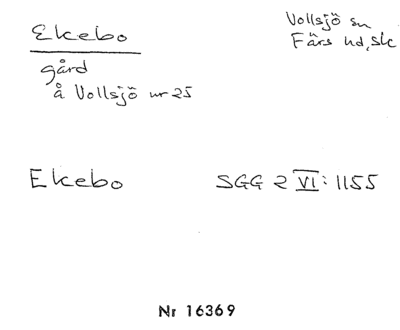 Ekebo
Vollsjö sn
Färs hd, Sk
gård
å Vollsjö nr 25
Ekebo
SGG 2 VI: 1155
Nr 16369